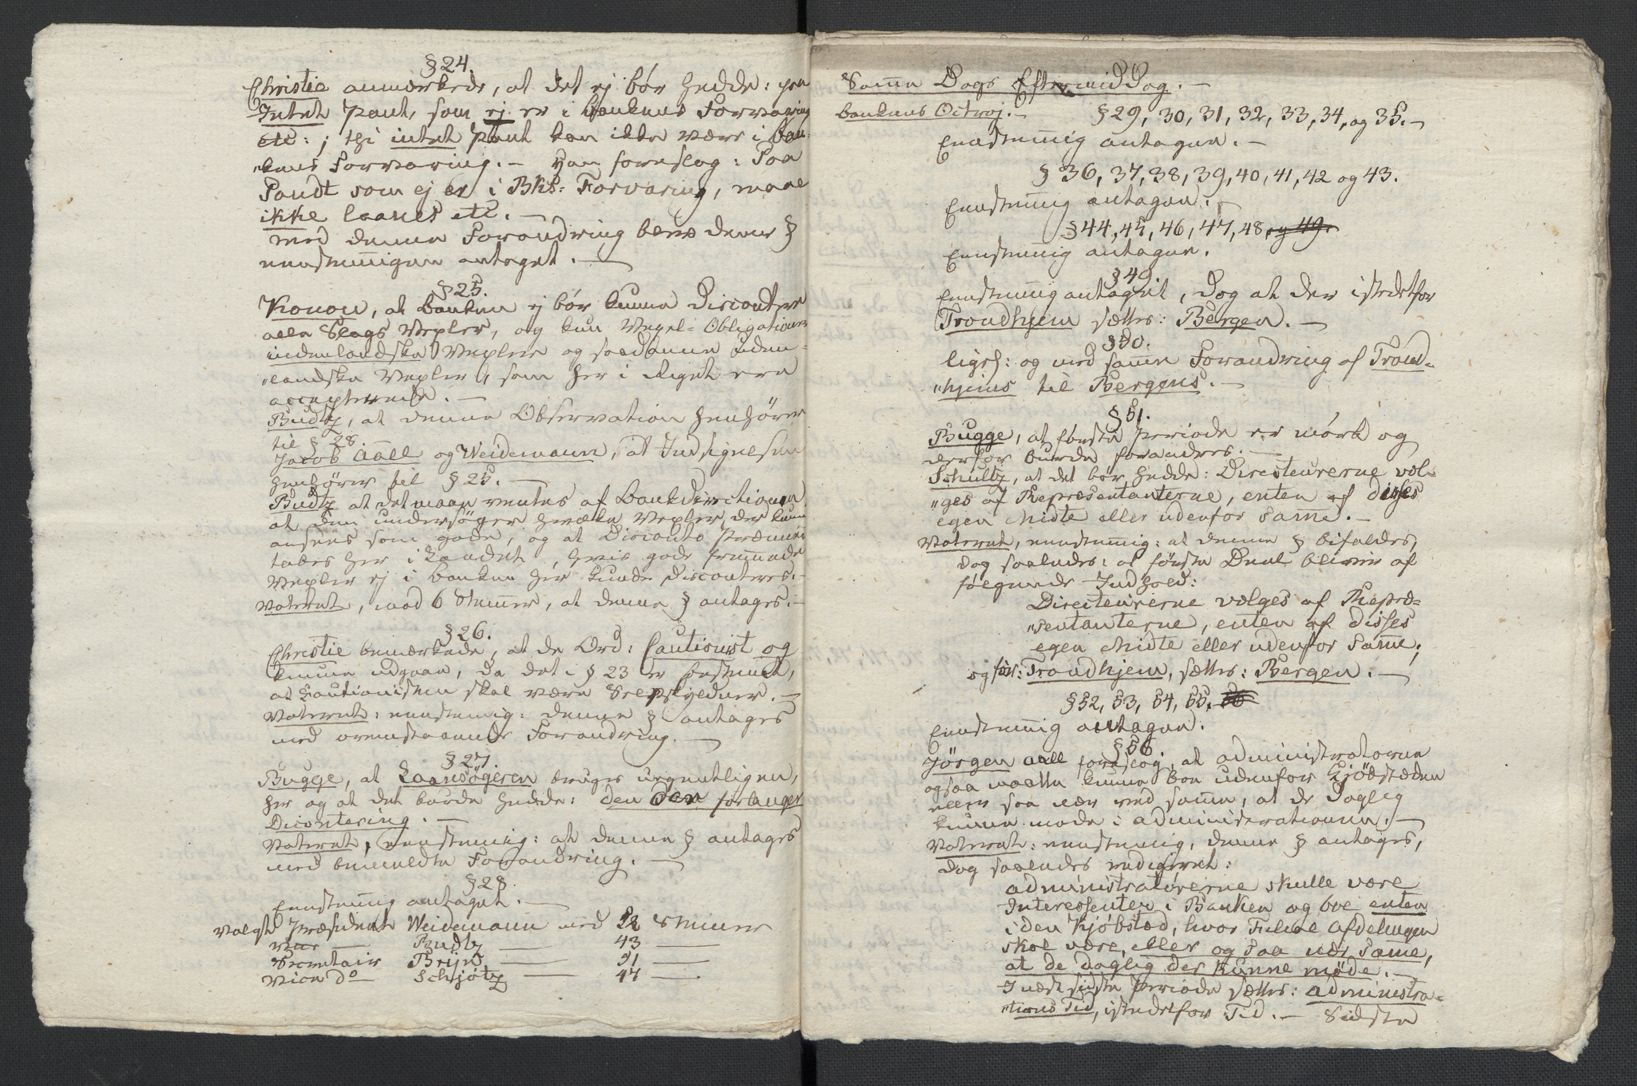 § 24.
Christie anmærkede, at det ej bør hedde: paa
Intet Pant, som ej er i Bankens Forvaring
etc: ; thi intet Pant kan ikke være i Ban-
kens Forvaring. — Han foreslog: Paa
Pandt som ej er i Bks: Forvaring, maae
ikke laanes etc. —
med denne Forandring blev denne §
eenstemmigen antaget. —
§ 25.
Konow, at Banken ej bør kunne Discontere
alle Slags Vexler, og kun Vexel-Obligationer
indenlandske Vexler og saadanne uden-
landske Vexler, som her i Riget ere
accepterede. —
Budtz, at denne Observation henhører
til § 28
Jacob Aall og Weidemann, at Indsigelsen
henhører til § 25. —
Budtz at det maae ventes af Bankdirectionen
at den undersøger hvilke Vexler der kunne
ansees som gode, og at Disconto Præmien
tabes her i Landet, hvis gode fremmede
Vexler ej i Banken her kunde Disconteres. —
Voteret, mod 6 Stemmer, at denne § antages. —
§ 26.
Christie bemærkede, at de Ord: Cautionist og
kunne udgaae, da det i § 23 er bestemt,
at Cautionisten skal være Selvskyldner. —
Voteret: eenstemmig: denne § antages
med ovenstaaende Forandring. —
§ 27.
Bugge, at Laansøgeren bruges uegentligen,
her og at det burde hedde: den der forlanger
Dicontering. —
Voteret, eenstemmig: at denne § antages
med bemeldte Forandring. —
§ 28.
Eenstemmig antaget. —
Valgt Præsident Weidemann med 52 Stemer
Vice — Budtz — 43 —
Secretair Brijn — 51 —
Vice Do Schjøtz — 47 —
Samme Dags Eftermiddag. —
Bankens Octroj. — § 29, 30, 31, 32, 33, 34, og 35. —
Eenstemmig antagen. —
§ 36, 37, 38, 39, 40, 41, 42 og 43.
Eenstemmig antagen.
§ 44, 45, 46, 47, 48 og 49.
Eenstemmig antagen.
§ 49.
Eenstemmig antaget, dog at der istedetfor
Trondhjem sættes: Bergen. —
§ 50.
liges: og med samme Forandring af Trond-
hjems til Bergens. —
§ 51.
Bugge, at første Periode er mørk og
derfor burde forandres. —
Schultz, at det bør hedde: Directeurerne væl-
ges af Repræsentanterne, enten af disses
egen Midte eller udenfor samme. —
Voteret, eenstemmig: at denne § bifaldes,
dog saaledes: at første Deel bliver af
følgende Indhold:
Directeurerne vælges af Repræ-
sentanterne, enten af disses
egen Midte eller udenfor samme;
og for: Trondhjem, sættes: Bergen. —
§ 52, 53, 54, 55.
Eenstemmig antagen.
§ 56.
Jørgen Aall foreslog, at administratoren
ogsaa maatte kunne boe udenfor Kjøbstæden
eller saa nær ved samme, at de daglig
kunne møde i administrationen. —
Voteret: eenstemmig, denne § antages,
dog saaledes redigeret:
administratorerne skulle være
Interessenter i Banken og boe enten
i den Kjøbstæd, hvor Filial Afdelingen
skal være, eller og saa nær samme,
at de daglig der kunne møde. —
I næst sidste Periode sættes: administra-
tions Tid, istedetfor Tid. — Sidste